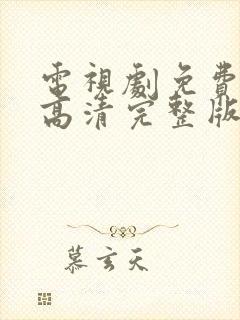 電視劇免費
高清完整版
慕玄天